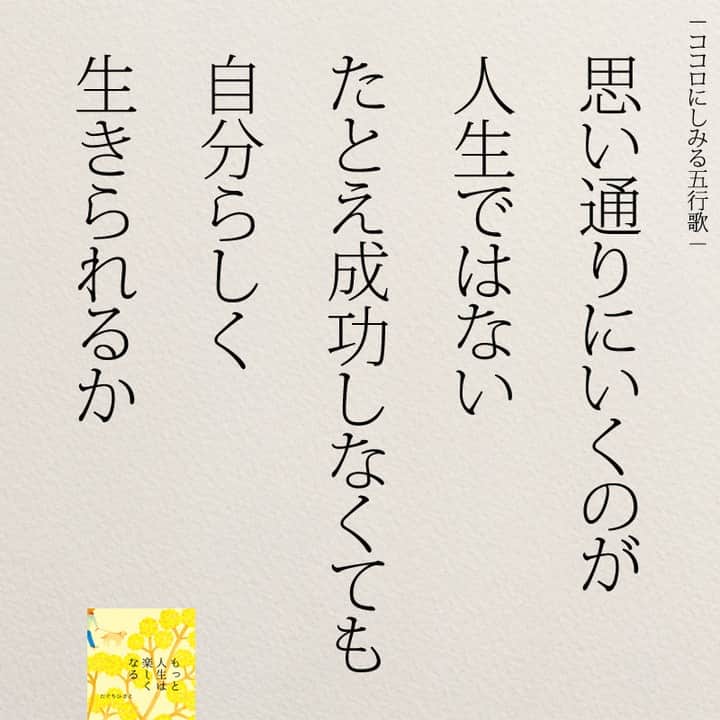 ―ココロにしみる五行歌―
思い通りにいくのが
人生ではない
たとえ成功しなくても
自分らしく
生きられるか
もっと
人生は
楽しく
なる
たぐちひさと